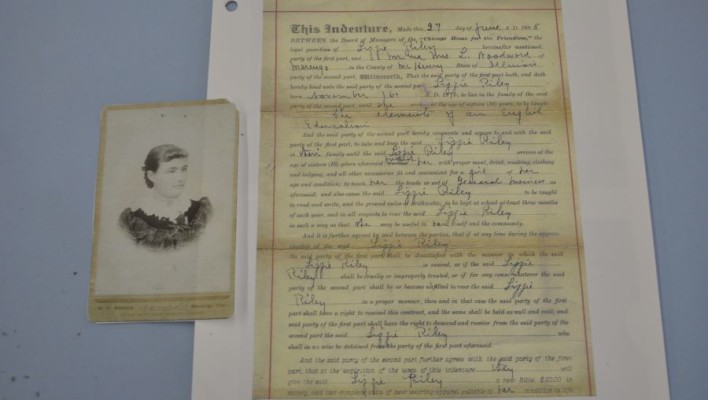 This Indenture, Made this 27 day of June A.D. 188
BETWEEN the Board of Managers of the "Chicago Home for the Friendless," the
legal guardian of Lizzie Riley hereinafter mentioned,
party of the first part, and Mr and Mrs L. Woodward of
Marengo in the County of McHenry State of Illinois
party of the second part, Witnesseth, That the said party of the first part hath, and doth
hereby bind unto the said party of the second part Lizzie Riley
born November 16 A.D. 187 , to live in the family of the said
party of the second part until she at the age of (18) years, to be taught
the elements of an English
Education
And the said party of the second part hereby covenants and agrees to and with the said
party of the first part, to take and keep the said Lizzie Riley
in their family until the said Lizzie Riley arrives at the
age of (18) years aforesaid her with proper meat, drink, washing, clothing
and lodging, and all other necessaries fit and convenient for a girl of her
age and condition; to teach her the trade or art of General business as
aforesaid; and also cause the said Lizzie Riley to be taught
to read and write, and the ground rules of Arithmetic; to be kept at school at least three months
of each year, and in all respects to rear the said Lizzie Riley
in such a way as that she may be useful to herself and the community.
And it is further agreed by and between the parties, that if at any time during the
of the said Lizzie Riley
the said party of the first part shall be dissatisfied with the manner in which the said
Lizzie Riley is reared, or if the said Lizzie
Riley shall be cruelly or improperly treated, or if for any cause whatever the said
party of the second part shall be or become unfitted to rear the said Lizzie
Riley in a proper manner, then and in that case the said party of the first
part shall have a right to rescind this contract, and the same shall be held as null and void; and
said party of the first part shall have the right to demand and receive from the said party of the
second part the said Lizzie Riley who
shall in no wise be detained from the party of the first part aforesaid.
And the said party of the second part further agrees with the said party of the first
part, that at the expiration of the term of this indenture they will
give the said Lizzie Riley a new Bible, $20.00 in
money, and two complete suits of good wearing apparel suitable to her condition in life.